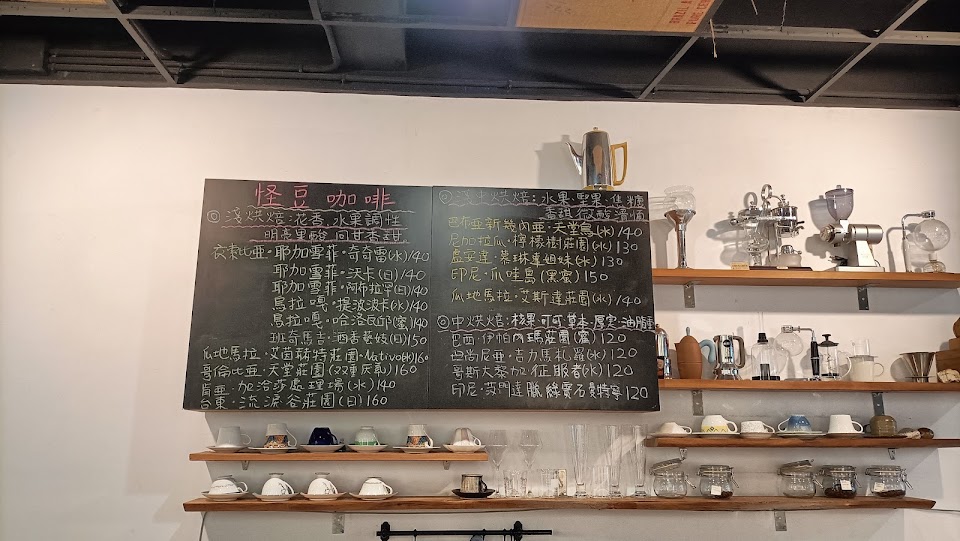 怪豆咖啡
◎淺烘焙:花香.水果調性
明亮果酸 回甘香甜
衣索比亞·耶加雪菲·奇奇雷(水)140
耶加雪菲·沃卡(日)140
耶加雪菲·阿布拉罕(日)140
烏拉嘎·提波波卡(水)140
烏拉嘎·哈洛瓦邱(蜜)140
班奇馬吉·酒香藝妓(日)150
瓜地馬拉·艾茵赫特莊園·Nativo(水)160
哥倫比亞·天堂莊園(双重厌氧)160
肯亞·加洽莎處理場(水)140
台東·流淚谷莊園(日)160
◎淺中烘焙:水果.堅果.焦糖
香甜.微酸.滑順
巴布亞新幾內亞·天堂鳥(水)140
尼加拉瓜·檸檬樹莊園(水)130
盧安達·慕琳達姐妹(水)130
印尼·爪哇島(黑蜜)150
瓜地馬拉·艾斯達莊園(水)140
◎中烘焙:核果.可可.草本.厚実.油脂
巴西·伊帕內瑪莊園(蜜)120
巴尚尼亞·吉力馬札羅(水)120
哥斯大黎加·征服者(水)120
印尼·蘇門達臘 綠寶石曼特寧120
BRAZIL